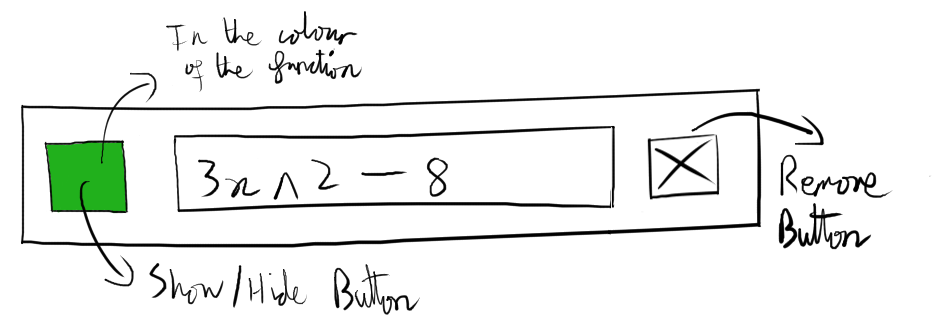 In the colour
of the function
3x^2 - 8
Remove
Button
Show/Hide Button